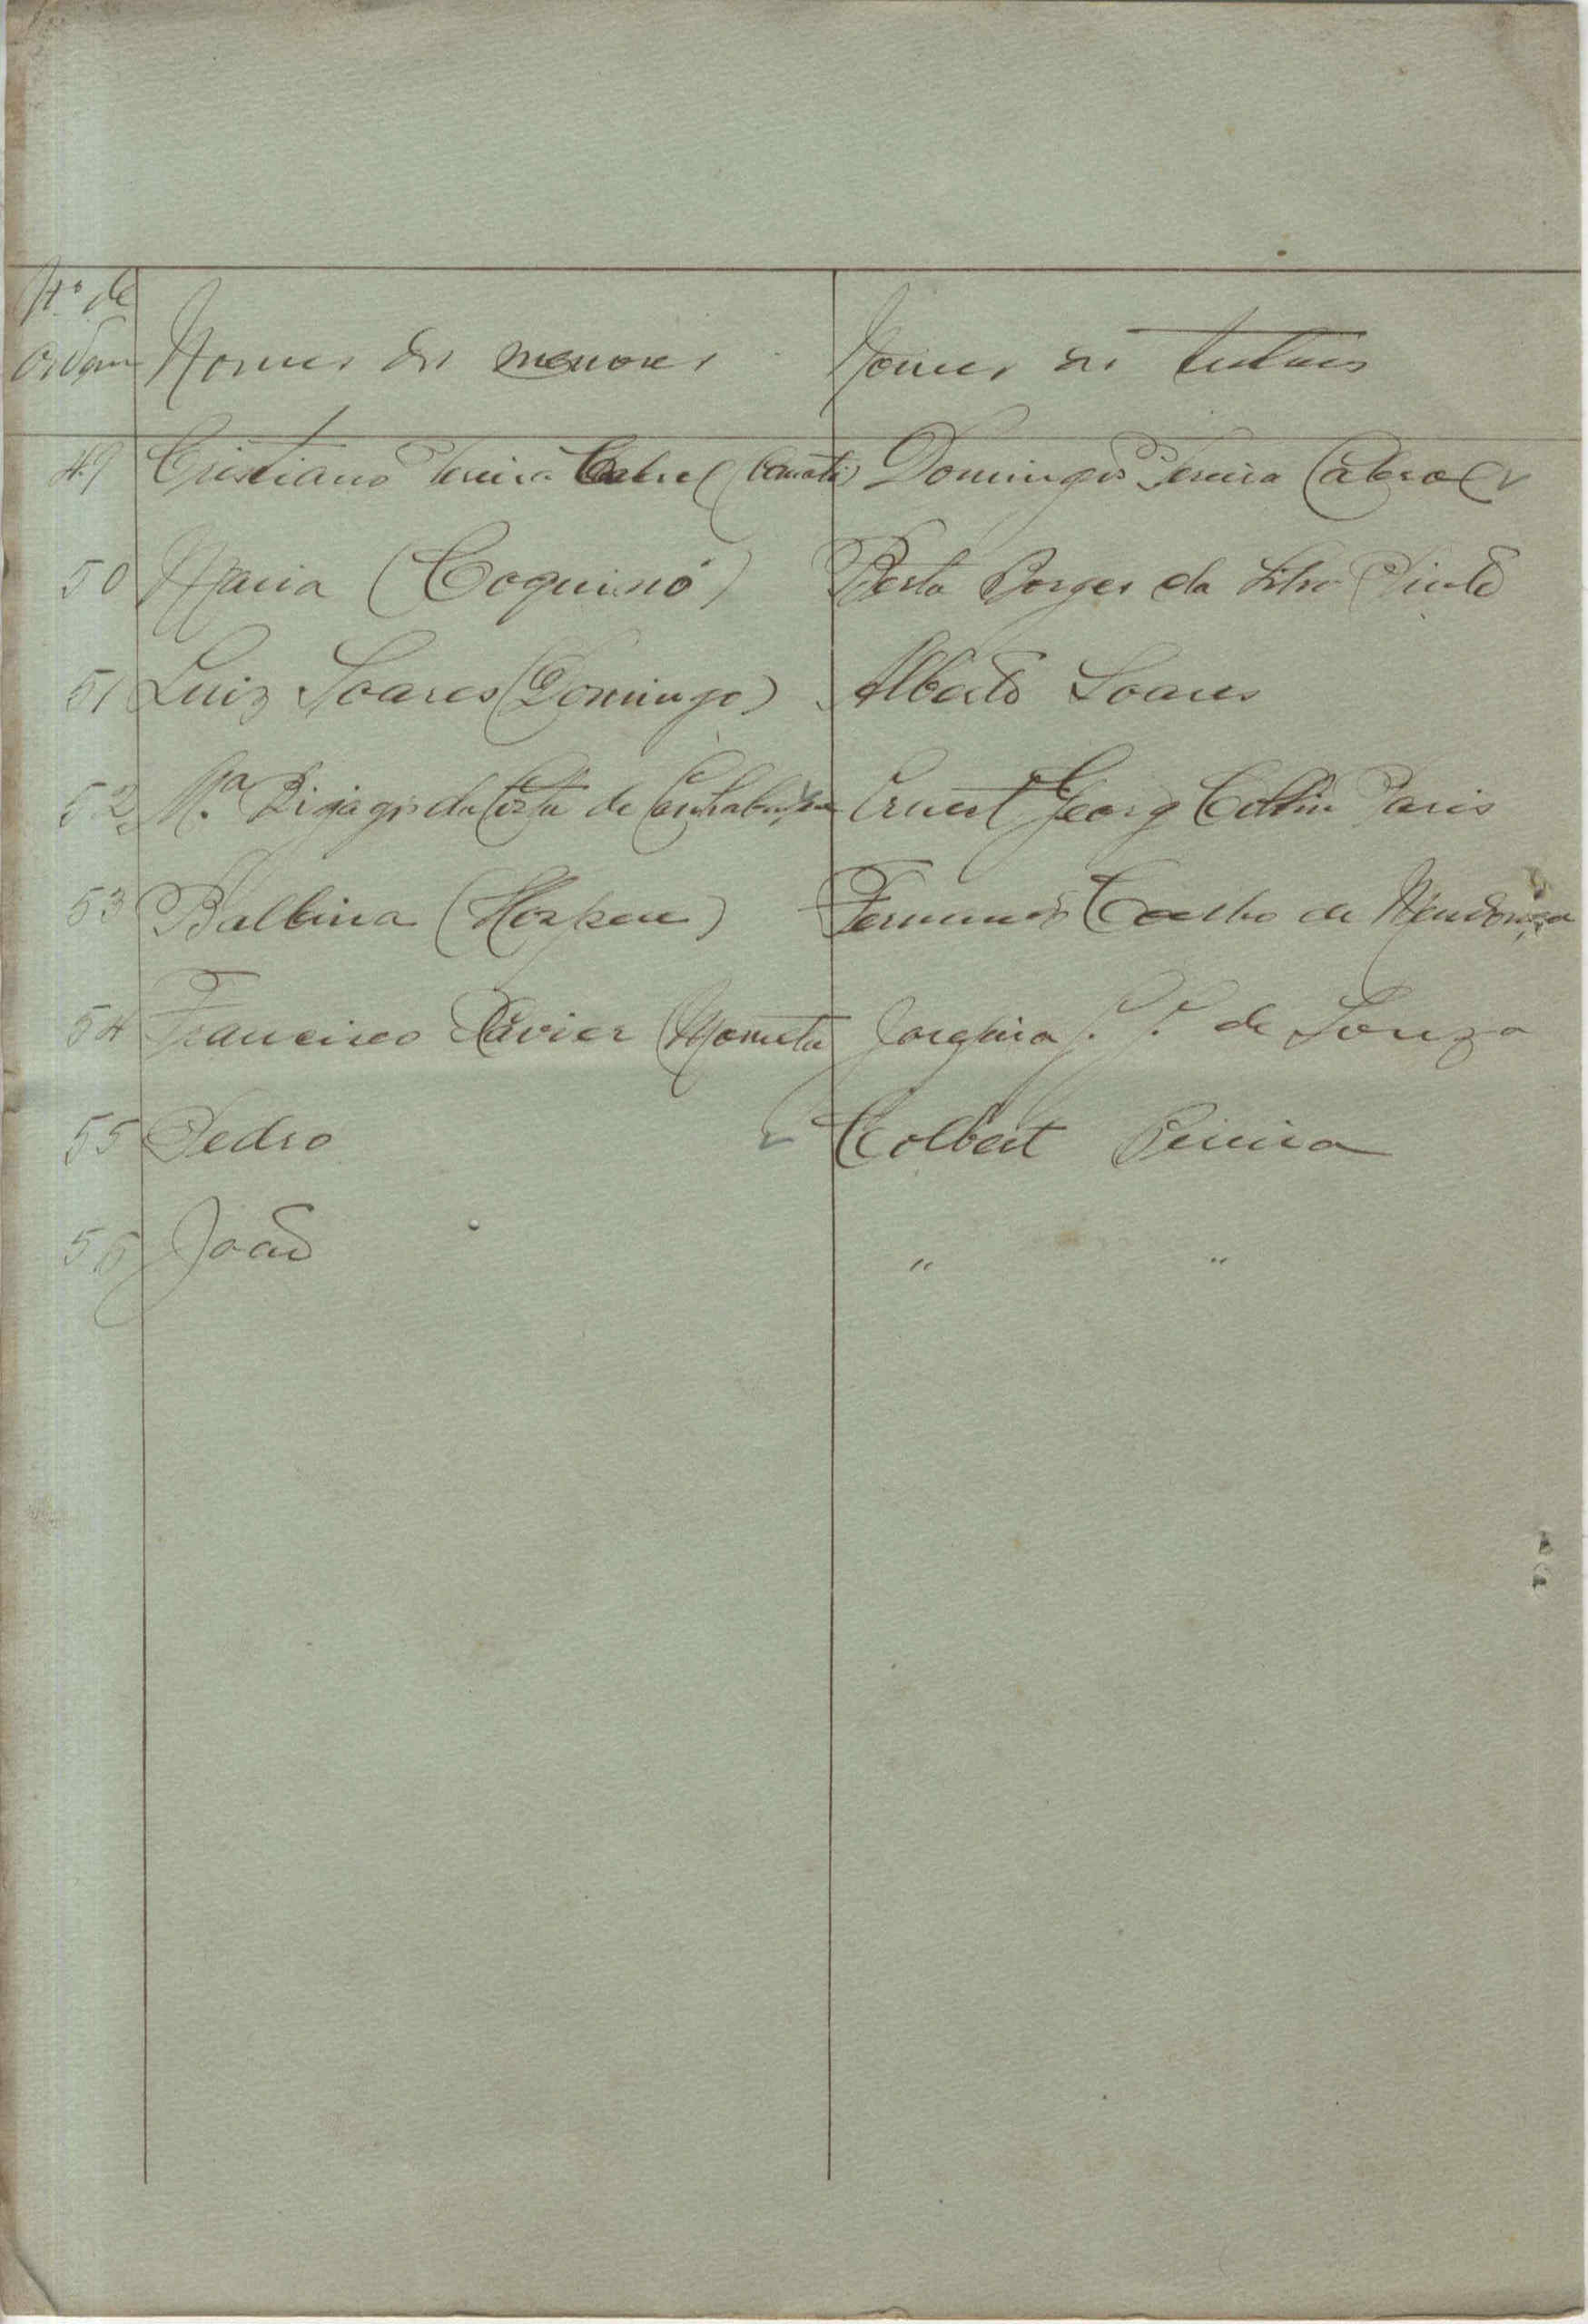 Nº de
Ordem Nomes dos menores Nomes dos tutores
49 Cristiano Pereira Cabral Domingos Pereira Cabral
50 Maria (Coquinó) Berta Borges da Silva Pinto
51 Luiz Soares (Domingo) Alberto Soares
52 Mª da Costa de Ernest Georg Paris
53 Balbina Fernando Coelho de Mendonça
54 Francisco Xavier Josephina de Souza
55 Pedro Colbert Pereira
56 João " "